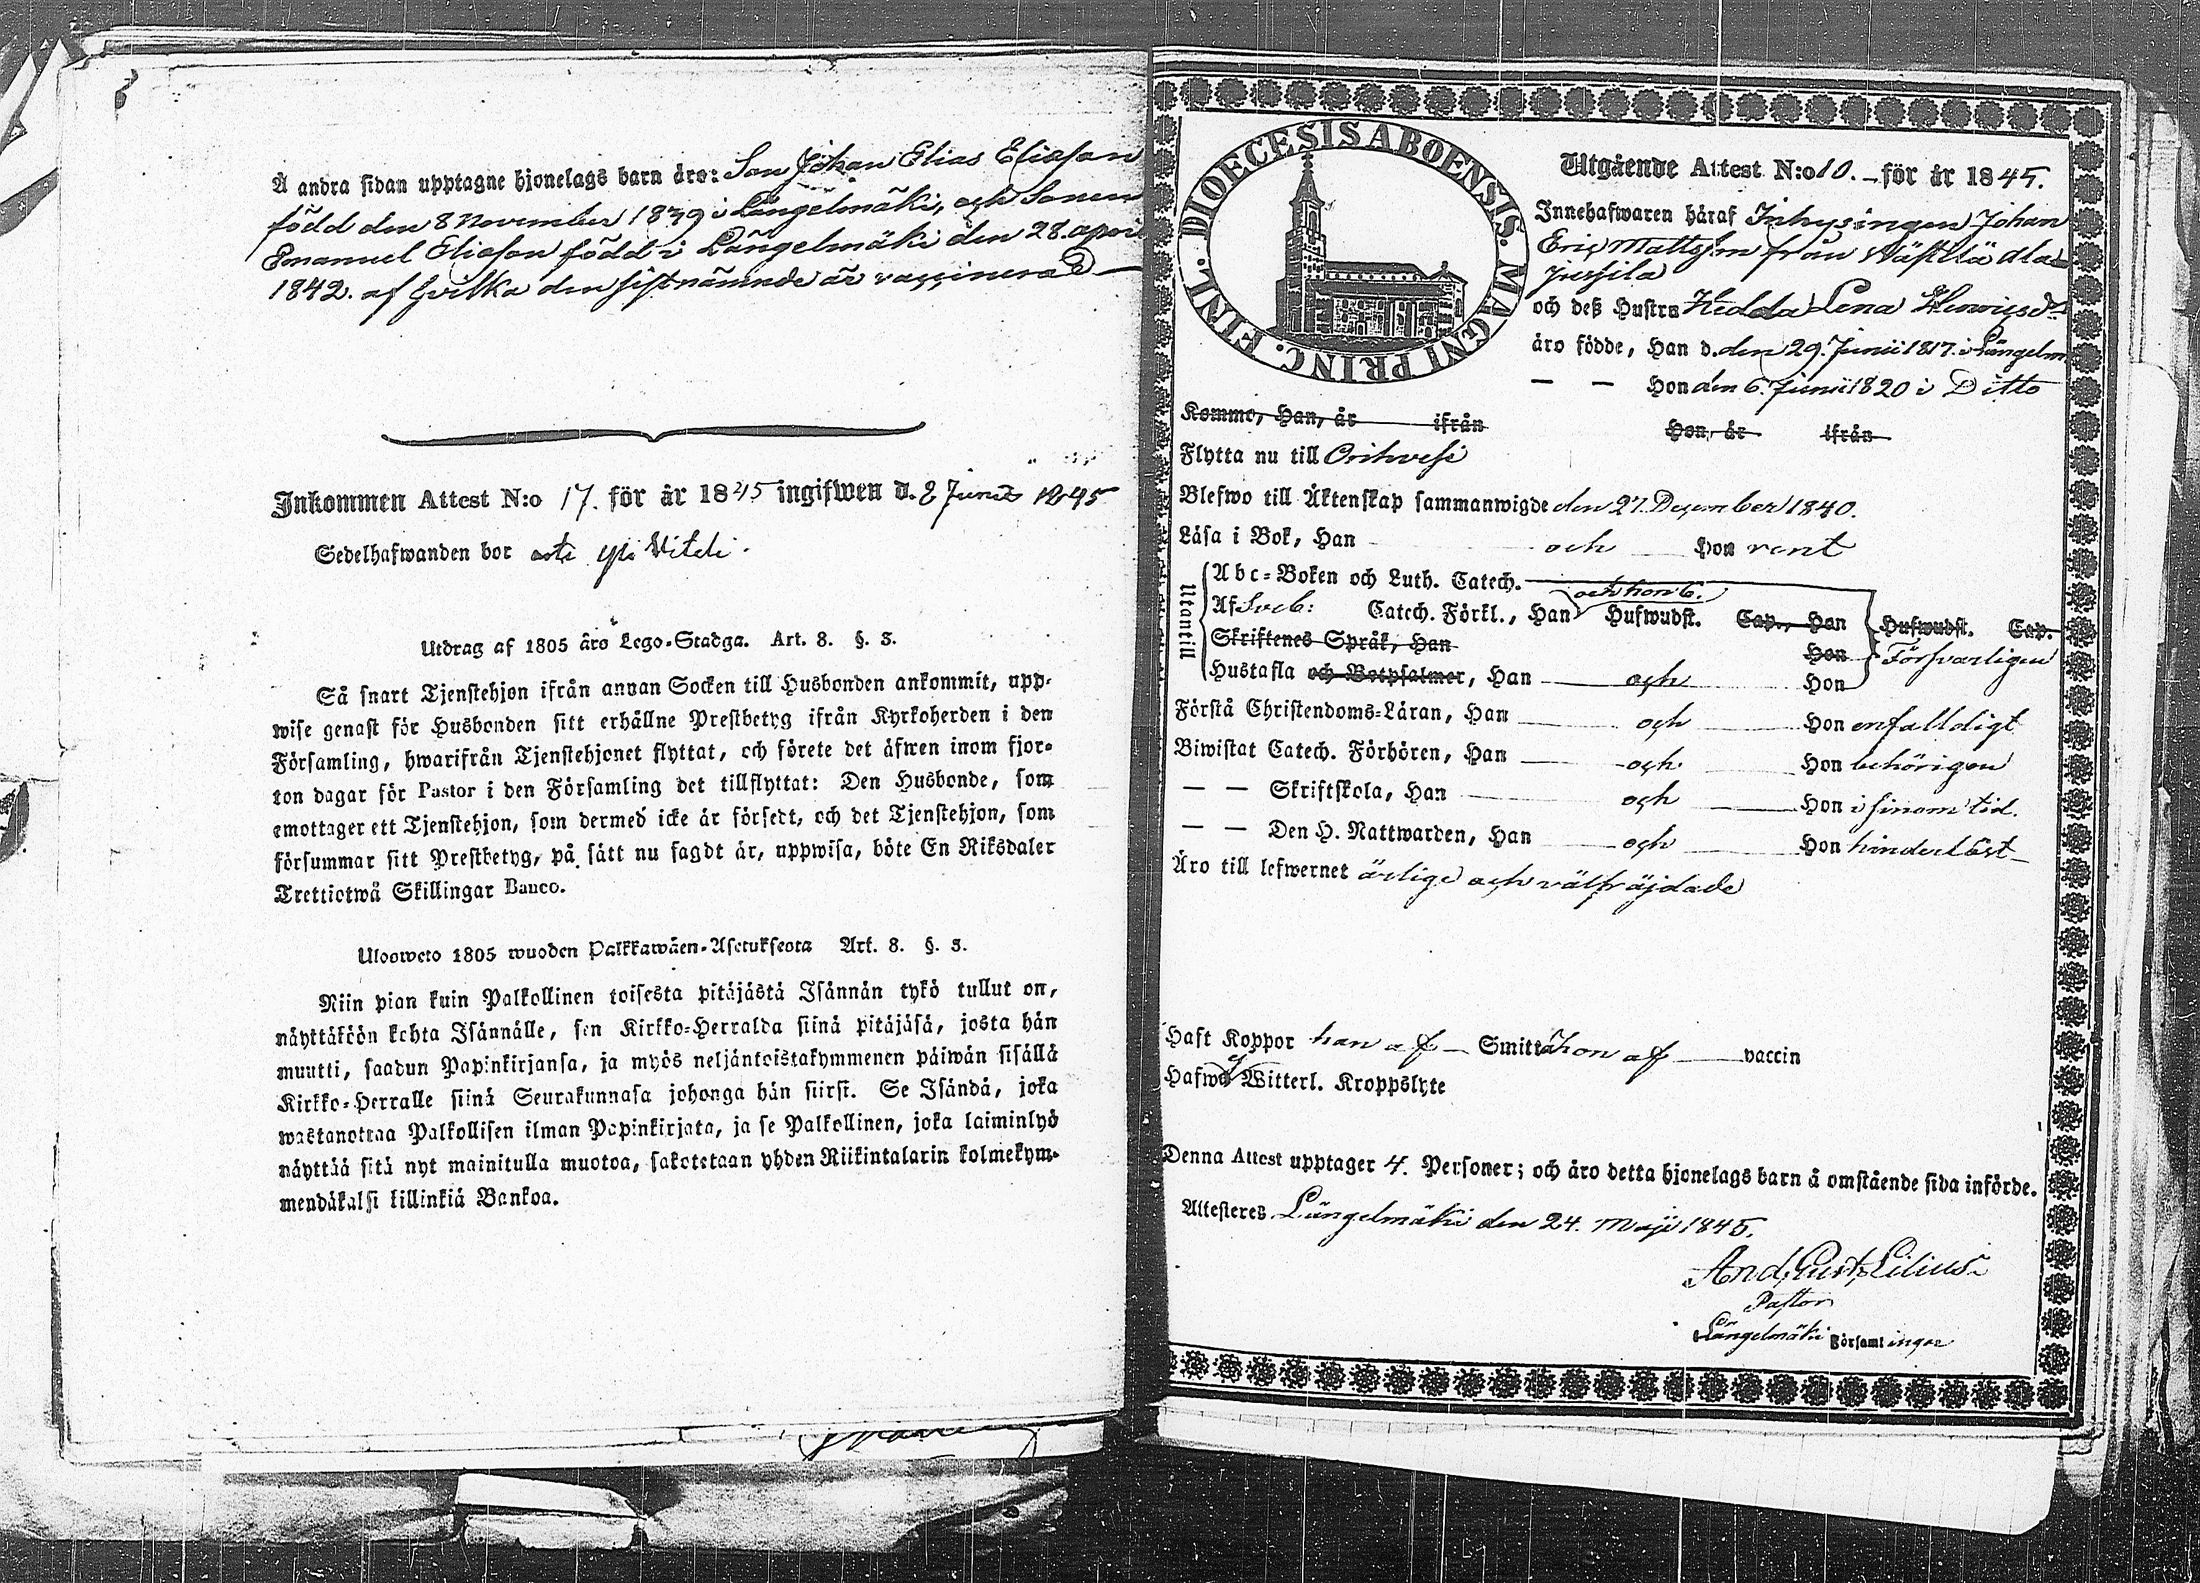 Å andra sidan upptagne hjonelags barn äro: Son Johan Elias Eliasson
född den 8 November 1839 i Längelmäki, och Sonen
Emanuel Eliason född i Längelmäki den 28. april
1842. af hvilka den sistnämnde är vaccinerad
Inkommen Attest N:o 17. för år 1845 ingifwen d. 8 Junii 1845
Sedelhafwanden bor
Utdrag af 1805 års Lego-Stadga. Art. 8. §. 3.
Så snart Tjenstehjon ifrån annan Socken till Husbonden ankommit, upp-
wise genast för Husbonden sitt erhållne Prestbetyg ifrån Kyrkoherden i den
Församling, hwarifrån Tjenstehjonet flyttat, och förete det äfwen inom fjor-
ton dagar för Pastor i den Församling det tillflyttat: Den Husbonde, som
emottager ett Tjenstehjon, som dermed icke är försedt, och det Tjenstehjon, som
försummar sitt Prestbetyg, på sätt nu sagdt är, uppwisa, böte En Riksdaler
Trettiotwå Skillingar Banco.
Ulosweto 1805 wuoden Palkkawäen-Asetuksesta Art. 8. §. 3.
Niin pian kuin Palkollinen toisesta pitäjästä Isännän tykö tullut on,
näyttäköön kohta Isännälle, sen Kirkko-Herralda siinä pitäjäsä, josta hän
muutti, saadun Papinkirjansa, ja myös neljäntoistakymmenen päiwän sisällä
Kirkko-Herralle siinä Seurakunnasa johonga hän siirsi. Se Isändä, joka
wastanottaa Palkollisen ilman Papinkirjata, ja se Palkollinen, joka laiminlyö
näyttää sitä nyt mainitulla muotoa, sakotetaan yhden Riikintalarin kolmekym-
mendäkaksi killinkiä Bankoa.
DIOECESIS ABOENSIS. MAGNI PRINC. FINL.
Utgående Attest N:o 10. för år 1845.
Innehafwaren häraf Inhysingen Johan
Eric Mattsson från Wästilä
Jussila
och deß Hustru Hedda Lena
äro födde, Han d. den 29. Junii 1817. i Längelm
— — Hon den 6. Junii 1820 i Ditto
Komme, Han, år ifrån Hon, år ifrån
Flytta nu till Orihvesi
Blefwo till Äktenskap sammanwigde den 27. December 1840.
Läsa i Bok, Han och Hon rent
Utantill
Abc-Boken och Luth. Catech.
och hon 6.
Af Sveb: Catech. Förkl., Han Hufwudst. Cap., Han Hufwudst. Cap.
Skriftenes Språk, Han Hon Försvarligen
Hustafla och Botpsalmer, Han och Hon
Förstå Christendoms-Läran, Han och Hon enfalldigt
Biwistat Catech. Förhören, Han och Hon behörigen
— — Skriftskola, Han och Hon i sinom tid.
— — Den H. Nattwarden, Han och Hon hinderlöst
Äro till lefwernet ärlige och välfräjdade
Haft Koppor han af — Smitta hon af — vaccin
Hafwa ej Witterl. Kroppslyte
Denna Attest upptager 4. Personer; och äro detta hjonelags barn å omstående sida införde.
Attesteres Längelmäki den 24. Maji 1845.
And. Gust. Lilius
Pastor
Längelmäki Församlingar